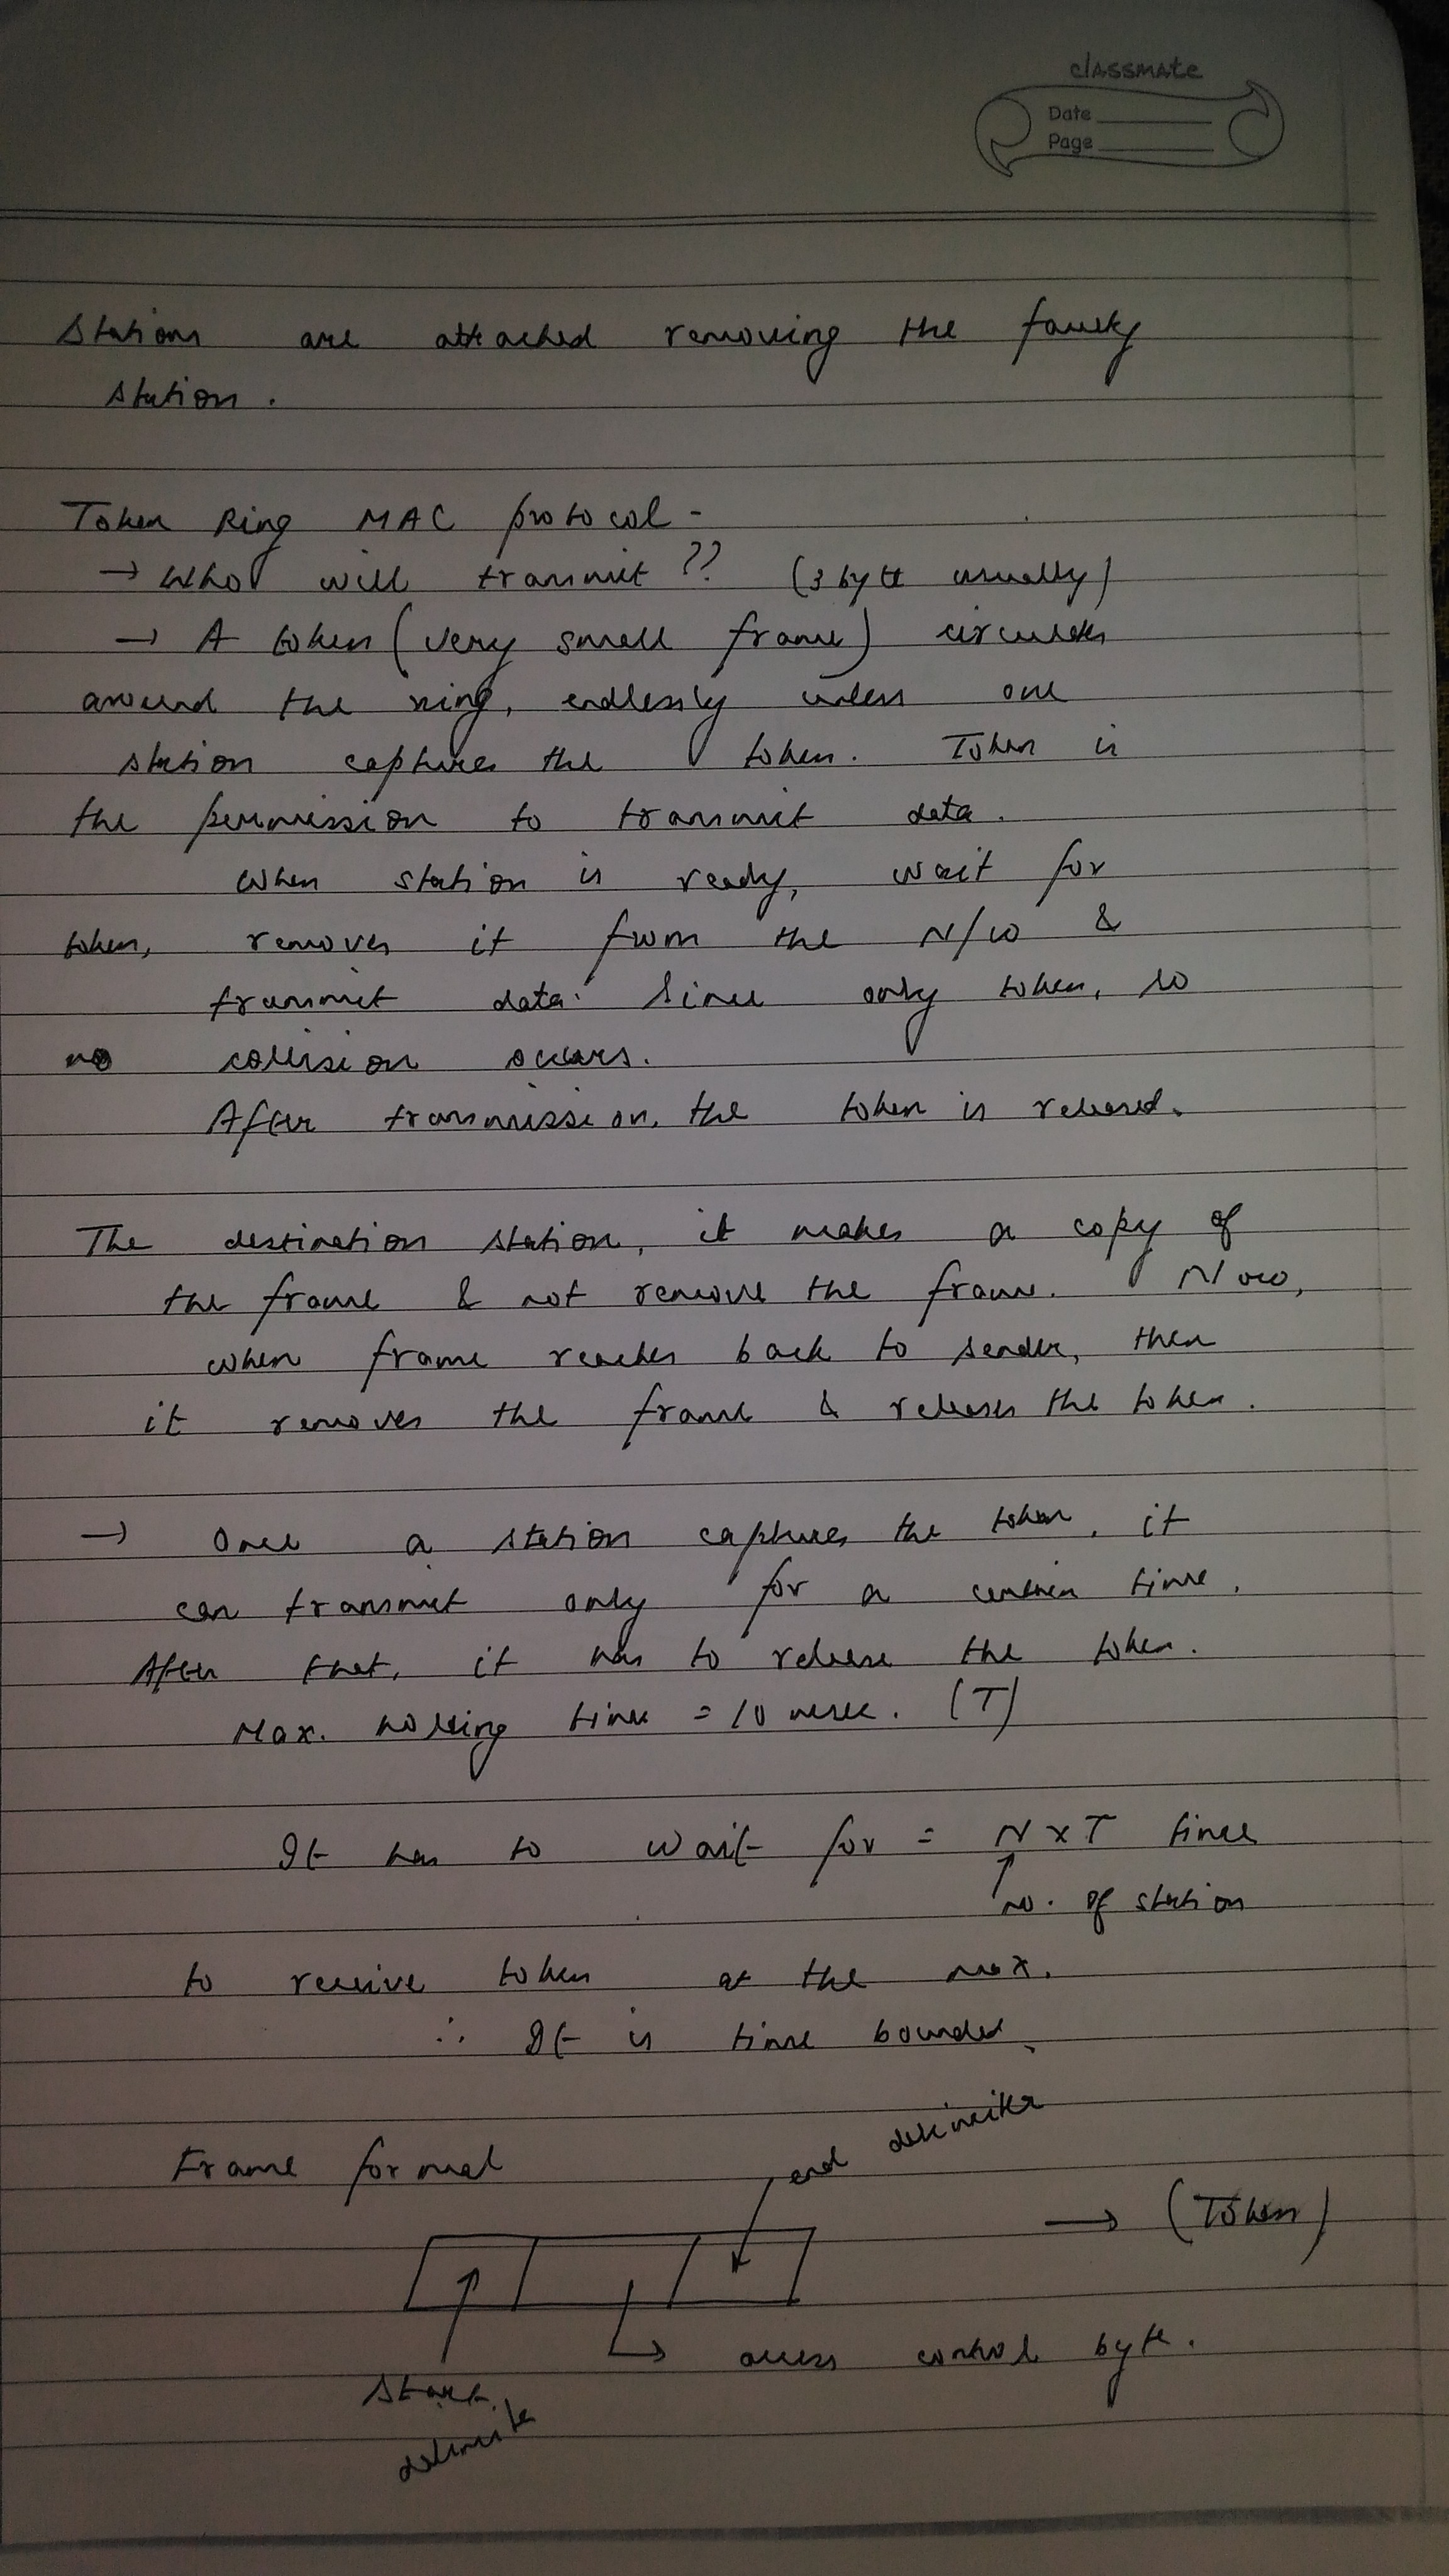 classmate
Date
Page
Stations are attached removing the faulty
station.
Token Ring MAC protocol -
→ Who will transmit ?? (3 byte usually)
→ A token (very small frame) circulates
around the ring, endlessly unless one
station captures the token. Token is
the permission to transmit data.
When station is ready, wait for
token, removes it from the N/W &
transmit data. Since only token, so
no collision occurs.
After transmission, the token is released.
The destination station, it makes a copy of
the frame & not remove the frame. Now,
when frame reaches back to sender, then
it removes the frame & releases the token.
→ Once a station captures the token, it
can transmit only for a certain time.
After that, it has to release the token.
Max. holding time = 10 msec. (T)
It has to wait for = N x T times
↑
no. of station
to receive token at the max.
∴ It is time bounded.
end delimiter
Frame format
→ (Token)
access control byte.
Start
delimite